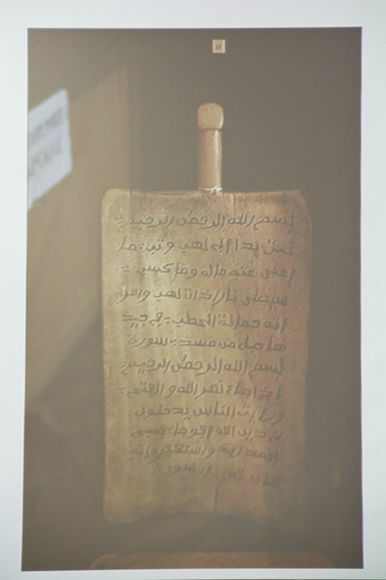 بسم الله الرحمن الرحيم
تبت يدا ابى لهب وتب ما
اغنى عنه ماله وما كسب
سيصلى نارا ذات لهب وامر
اته حمالة الحطب في جيد
ها حبل من مسد سورة
بسم الله الرحمن الرحيم
اذا جاء نصر الله والفتح
ورايت الناس يدخلون
في دين الله افواجا فسبح
بحمد ربك واستغفره انه
كان توابا سورة